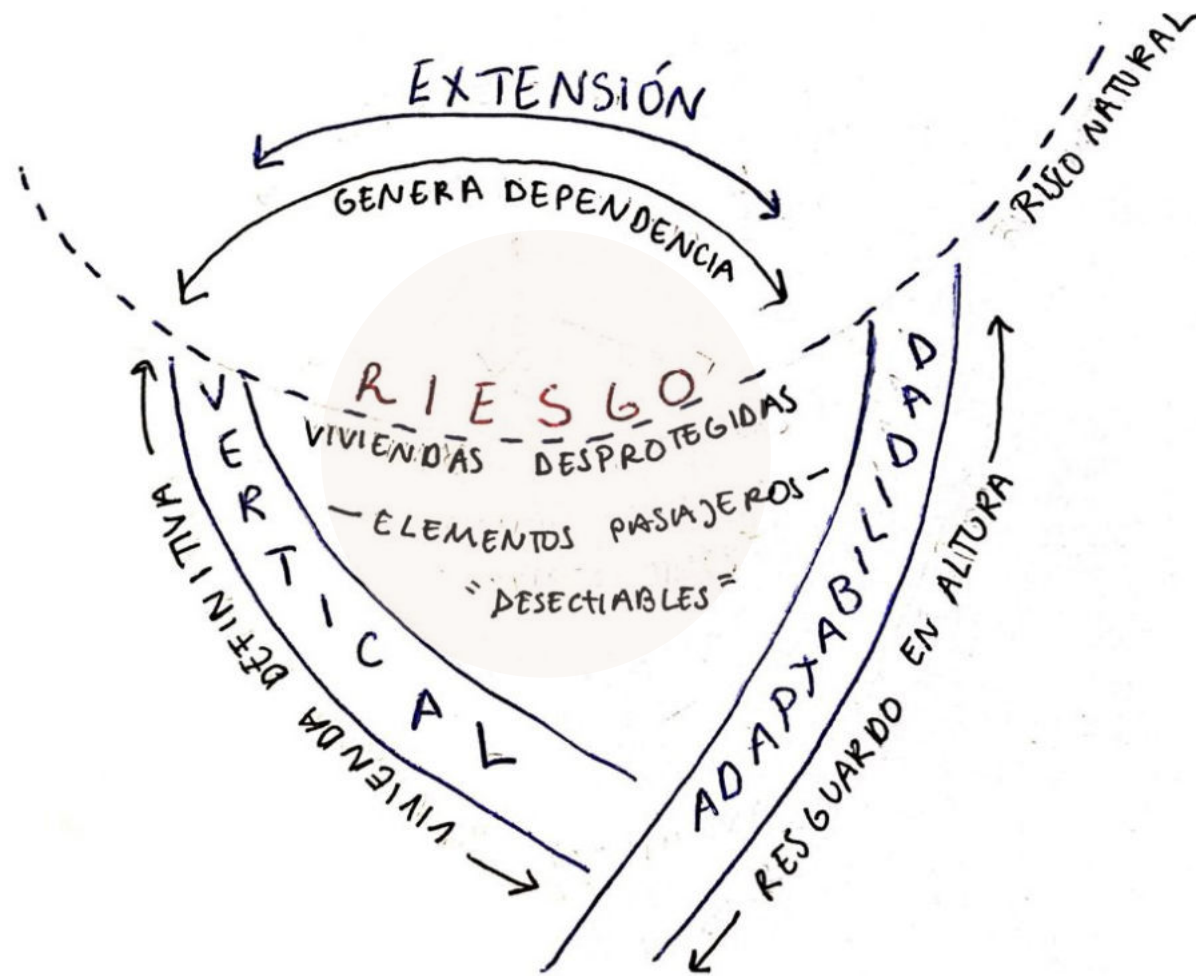 EXTENSIÓN
GENERA DEPENDENCIA
RISCO NATURAL
RIESGO
VIVIENDAS DESPROTEGIDAS
- ELEMENTOS PASAJEROS -
"DESECHABLES"
VERTICAL
VIVIENDA DEFINITIVA
ADAPTABILIDAD
RESGUARDO EN ALTURA